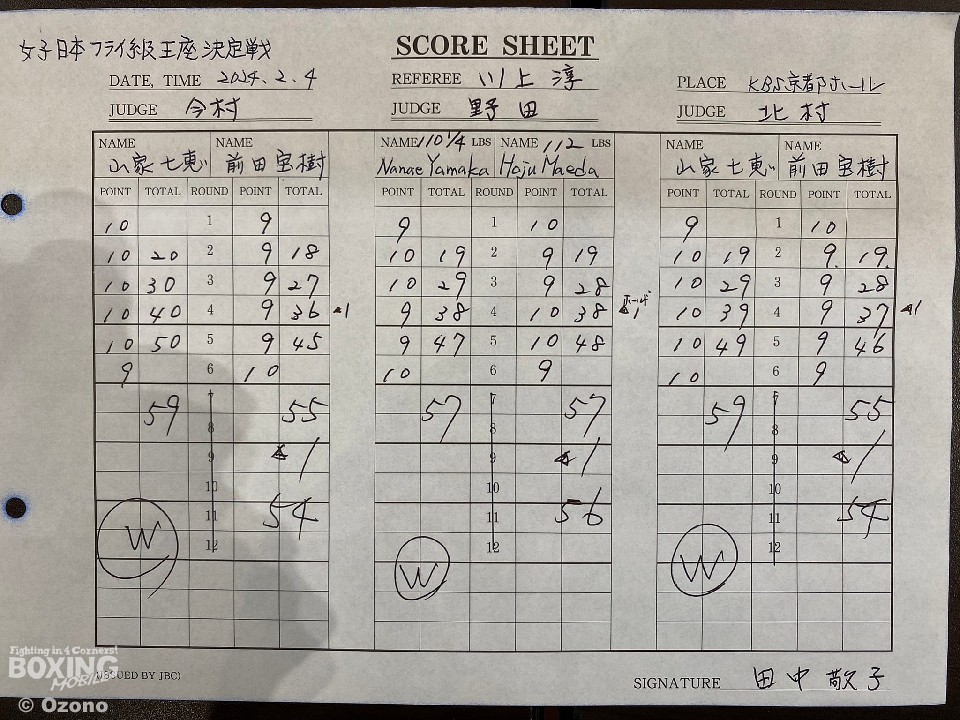 女子日本フライ級王座決定戦
SCORE SHEET
DATE, TIME 2024.2.4 REFEREE 川上 淳 PLACE KBS京都ホール
JUDGE 今村 JUDGE 野田 JUDGE 北村
NAME NAME NAME 110 1/4 LBS NAME 112 LBS NAME NAME
山家七恵 前田宝樹 Nanae Yamaka Hoju Maeda 山家七恵 前田宝樹
POINT TOTAL ROUND POINT TOTAL POINT TOTAL ROUND POINT TOTAL POINT TOTAL ROUND POINT TOTAL
10 1 9 9 1 10 9 1 10
10 20 2 9 18 10 19 2 9 19 10 19 2 9. 19.
10 30 3 9 27 10 29 3 9 28 10 29 3 9 28
10 40 4 9 36 ▲1 9 38 4 10 38 ホールド ▲1 10 39 4 9 37 ▲1
10 50 5 9 45 9 47 5 10 48 10 49 5 9 46
9 6 10 10 6 9 10 6 9
59 7 55 57 7 57 59 7 55
8 8 8
9 ▲1 9 ▲1 9 ▲1
10 10 10
11 54 11 56 11 54
W 12 W 12 W 12
Fighting in 4 Corners!
BOXING
MOBILE
(ISSUED BY JBC) SIGNATURE 田中敬子
© Ozono